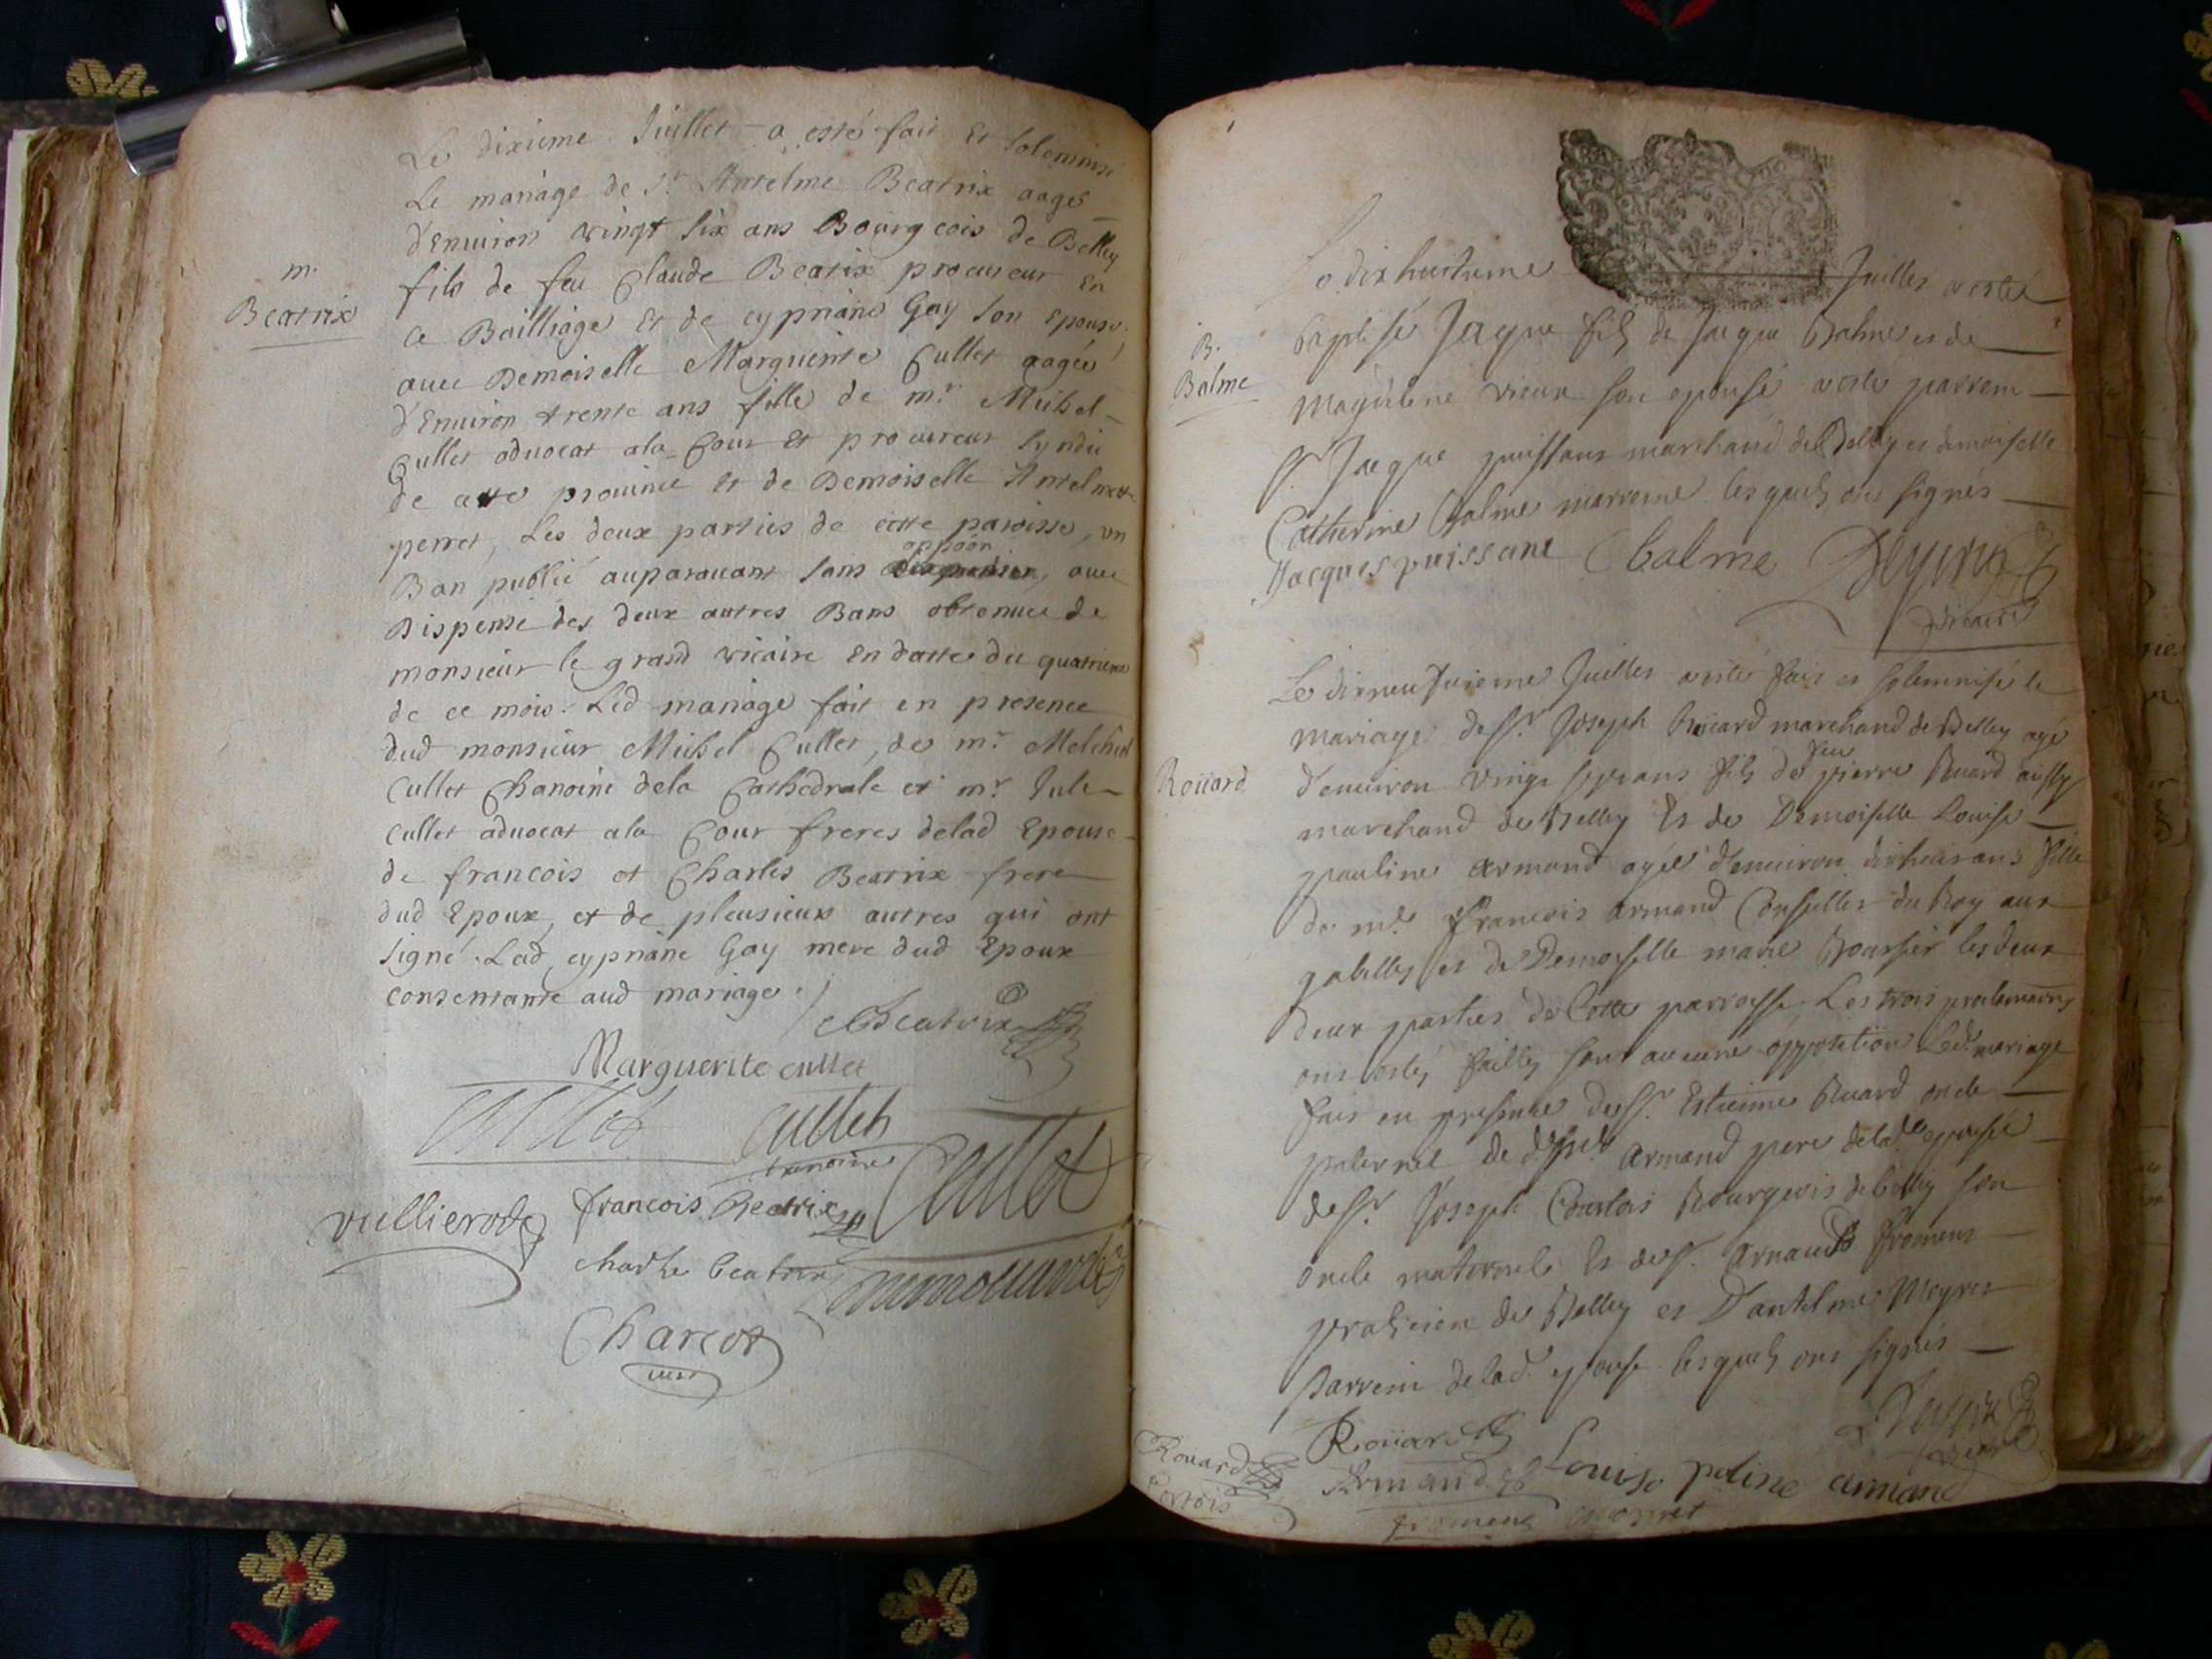 Le dixieme Juillet a esté fait Et solemnisé
Le mariage de Sr Antelme Beatrix aagé
d'Enuiron vingt six ans Bourgeois de Belley
m.
Beatrix
fils de feu Claude Beatrix procureur En
ce Bailliage Et de cypriane Gay son Epouse,
auec Demoiselle Marguerite Cullet aagée
d'Enuiron trente ans fille de mr. Michel
Cullet aduocat ala Cour Et procureur syndic
de cette prouince Et de Demoiselle Antelmette
perret, Les deux parties de cette paroisse, vn
Ban publié auparauant sans oppôon, auec
Dispense des deux autres Bans obtenue de
monsieur le grand vicaire En datte du quatrieme
de ce mois. Led mariage fait en presence
dud monsieur Michel Cullet, de mr Melchiol
Cullet Chanoine dela Cathedrale et mr. Jule
Cullet aduocat ala Cour freres delad Epouse
de francois et Charles Beatrix frere
dud Epoux, et de pleusieux autres qui ont
signé. Lad cypriane Gay mere dud Epoux
consentante aud mariage.
Beatrix
Marguerite cullet
Cullet cullet
chanoine Cullet
vullierod francois Beatrix
charle beatrix
Charcot
curé
Le dixhuitieme Juillet a esté
B.
Balme
baptisé Jaque fils de Jaque Balme et de
Magdelene vieux son epouse a esté parrein
Sr. Jaque puissant marchand de Belley et demoiselle
Catherine Balme marreine lesquels ont signés
Jacques puissant C balme
vicaire
Le dixneufuieme Juillet a esté fait et solemnisé le
mariage de Sr. Joseph Roüard marchand de Belley agé
Roüard
d'enuiron vingt sept ans fils de feu pierre Ruard aussy
marchand de Belley Et de Demoiselle Louise
pauline armand agée d'enuiron dixhuit ans fille
de mr. francois armand Conseiller du Roy aux
gabelles et de Demoiselle marie les deux
deux parties de Cette parroisse Les trois proclamaôns
ont estés faittes sans aucune opposition Led. mariage
fait en presence de Sr. Estienne Ruard oncle
paternel de armand pere de lad. epouse
de Sr. Joseph Courtois Bourgeois de belley son
oncle maternele Et de Sr. Arnaud froment
praticien de Belley et D'antelme
parrein de lad. epouse lesquels ont signés
Roüard
Rouard armand Louise poline armand
Cortois froment